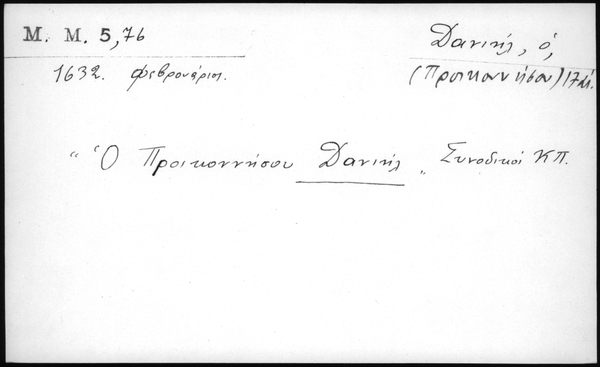 M. M. 5,76
Δανιήλ, ὁ,
1632. Φεβρουάριος.
(Προικοννήσου) 17 αἰ.
"Ὁ Προικοννήσου Δανιήλ" Συνοδικοί ΚΠ.